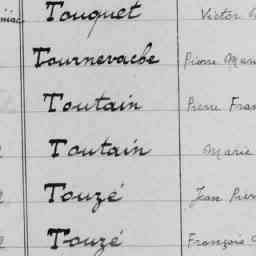 Touquet Victor
Tournevache Pierre
Toutain Pierre
Toutain Marie
Touzé Jean
Touzé François